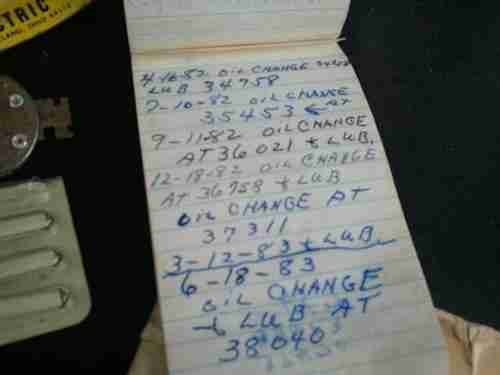 CTRIC
4-16-82 OIL CHANGE
LUB 34758
7-10-82 OIL CHANGE
35453 ← AT
9-11-82 OIL CHANGE
AT 36021 + LUB.
12-18-82 OIL CHANGE
AT 36758 + LUB
OIL CHANGE AT
37311
3-12-83 + LUB.
6-18-83
OIL CHANGE
+ LUB AT
38040